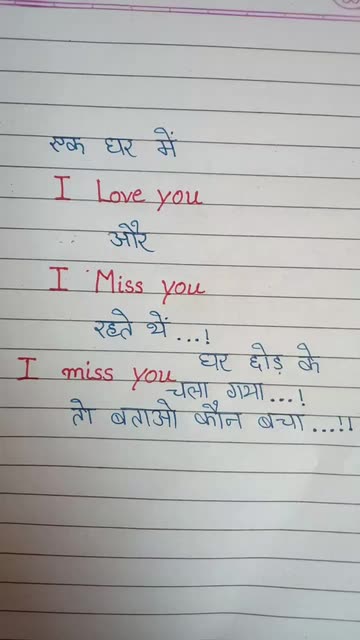 एक घर में
I Love you
और
I Miss you
रहते थें...!
I miss you घर छोड़ के
चला गया...!
तो बताओ कौन बचा...!!